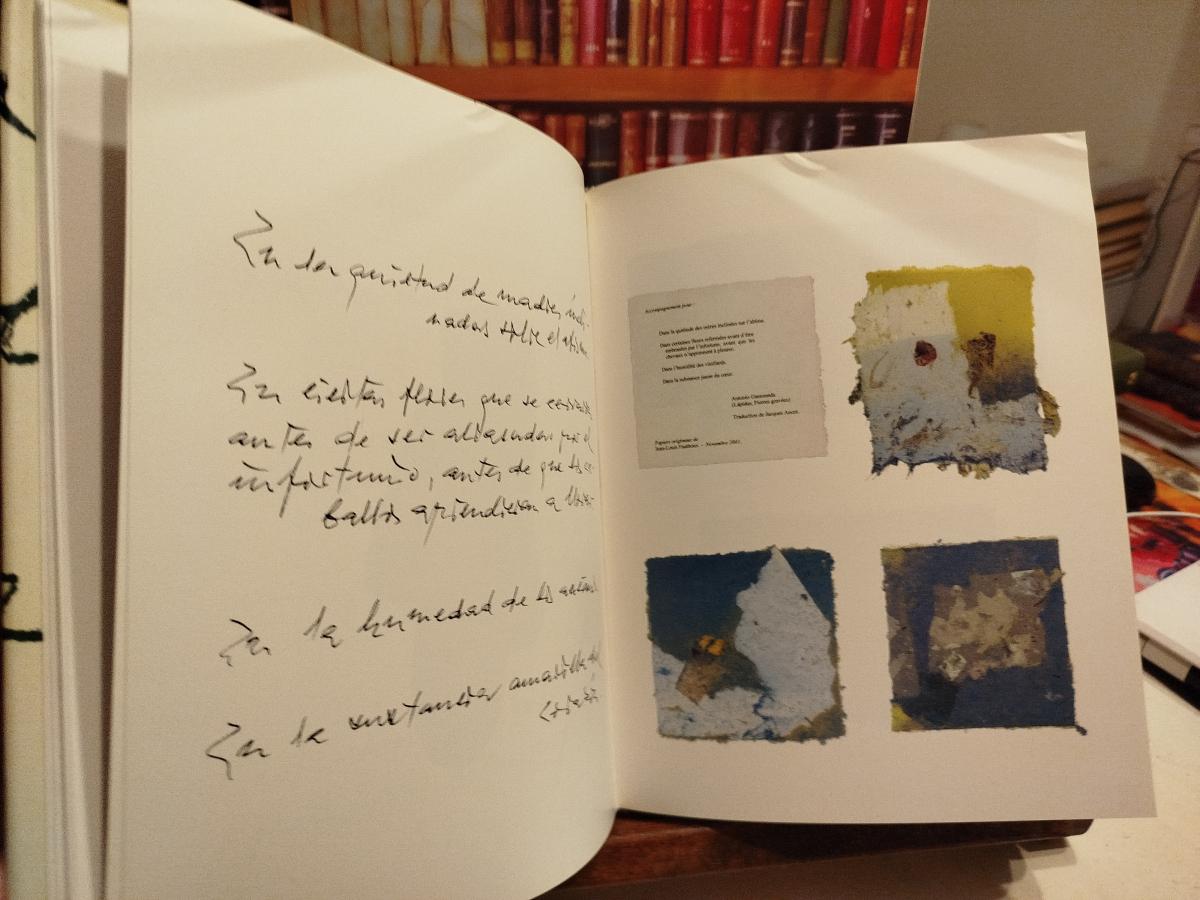 En la quietud de madres incli-
nadas sobre el abismo
En ciertas flores que se cerraron
antes de ser abrasadas por el
infortunio, antes de que los ca-
ballos aprendieran a llorar
En la humedad de los ancianos
En la sustancia amarilla del
corazón.
Accompagnement pour :
Dans la quiétude des mères inclinées sur l'abîme.
Dans certaines fleurs refermées avant d'être
embrasées par l'infortune, avant que les
chevaux n'apprennent à pleurer.
Dans l'humidité des vieillards.
Dans la substance jaune du cœur.
Antonio Gamoneda
(Lápidas, Pierres gravées)
Traduction de Jacques Ancet.
Papiers originaux de
Jean-Louis - Novembre 2001.